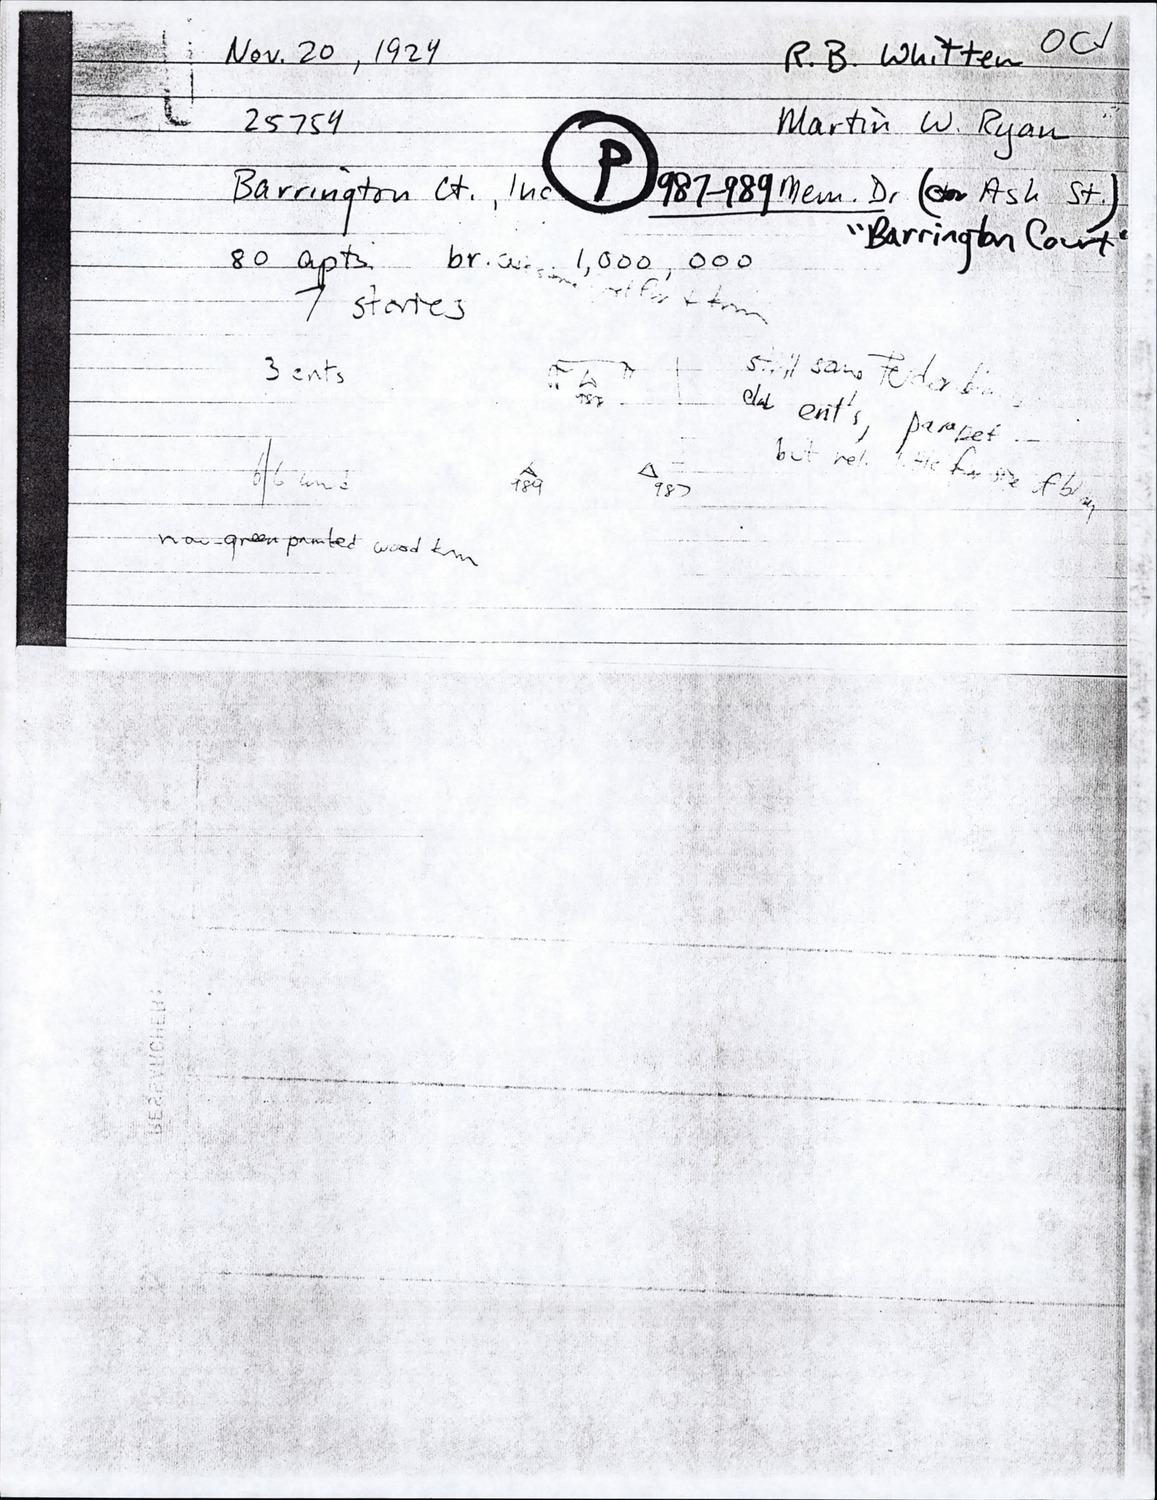 Nov. 20, 1924 R. B. Whitten OC
25754 Martin W. Ryan
Barrington Ct., Inc P 987-989 Mem. Dr (on Ash St.)
"Barrington Court"
80 apts. br. 1,000,000
7 stories
3 ents still some
ent's, parapet
but rel. little for size of bldg
6/6
989 987
now green painted wood trim
RESEARCHER: